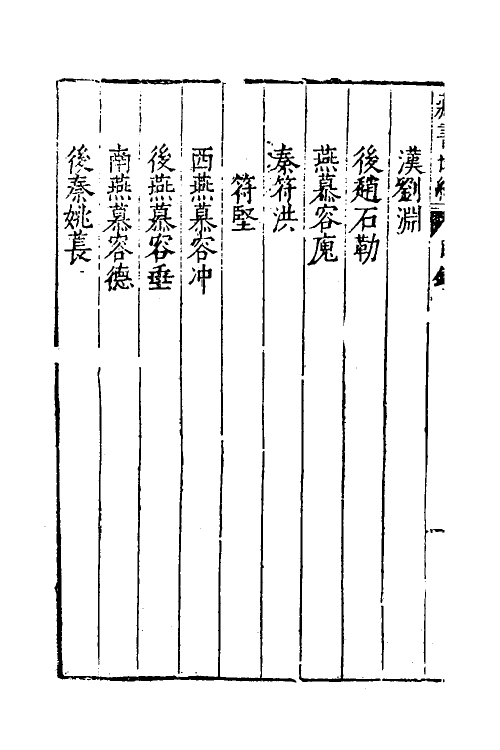 漢劉淵
後趙石勒
燕慕容廆
秦符洪
符堅
西燕慕容冲
後燕慕容垂
南燕慕容德
後秦姚萇